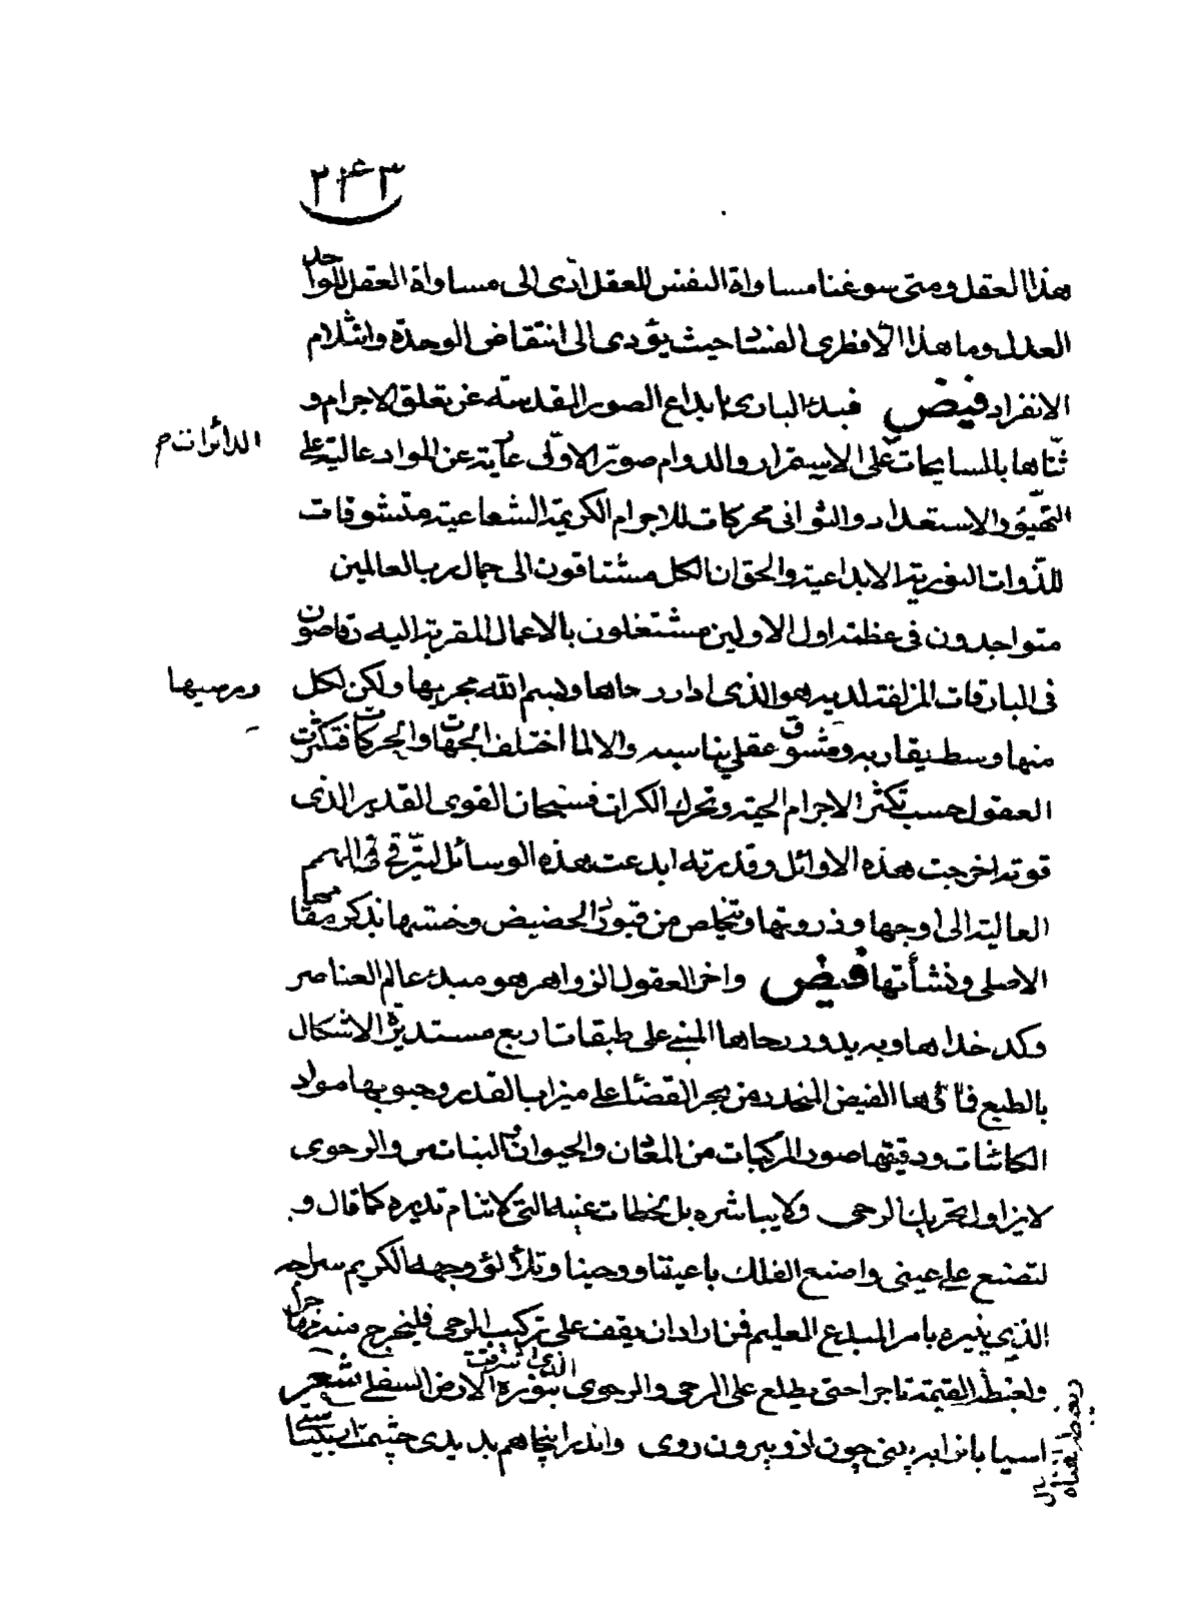 ٢٤٣
هذا العقل ومتى سوغنا مساواة النفس للعقل ادى الى مساواة العقل للواحد
العدل وما هذا الا فطرى الفساد حيث يؤدى الى انتقاض الوحدة وانثلام
الانفراد فيض فبدء البارى بابداع الصور المقدسة عن تعلق الاجرام و
ثناها بالمسابحات على الاستمرار والدوام صور الاولى عاية عن المواد عالية على
الدائرات م
التهيؤ والاستعداد والثوانى محركات للاجرام الكريمة الشعاعية متشوقات
للذوات النورية الابداعية والحق ان الكل مشتاقون الى جمال رب العالمين
متواجدون فى عظمة اول الاولين مشتغلون بالاعمال المقربة اليه رقاصون
فى البارقات المزلفة لديه هو الذى ادار رحاها وبسم الله مجريها ولكن لكل
ومرسيها
منها وسط يقاربه ومشوق عقلى يناسبه والا لما اختلف الجهات والحركات فتكثرت
العقول حسب تكثر الاجرام الحية وتحرك الكرات فسبحان القوى القدير الذى
قوته اخرجت هذه الاوائل وقدرته ابدعت هذه الوسائل لترقى فى الهمم
العالية الى اوجها وذروتها وتتخلص من قيود الحضيض وخستها بذكر مقامها
الاصلى ونشأتها فيض واخر العقول الزواهر هو مبدء عالم العناصر
وكدخداها وبه يدور رحاها المبنى على طبقات اربع مستديرة الاشكال
بالطبع فماؤها الفيض المنحدر من بحر القضاء على ميزاب القدر وحبوبها مواد
الكائنات ودقيقها صور المركبات من المعادن والحيوان والنبات والرحوى
لا يزاول تحريك الرحى ولا يباشره بل بلحظات عينه التى لا تنام تديره كما قال و
لتصنع على عينى واصنع الفلك باعيننا ووحينا وتلألؤ وجهه الكريم سراجه
الذى ينيره بامر المبدع العليم فمن اراد ان يقف على تركيب الرحى فليخرج منه مهاجرا
وليعط القيمة تاجرا حتى يطلع على الرحى والرحوى الذى اشرقت بنوره الارض السفلى شعر
اسيابانرا ببينى چون ازو بيرون روى واندر اينجا هم بديدى چشمت ار بيناستى